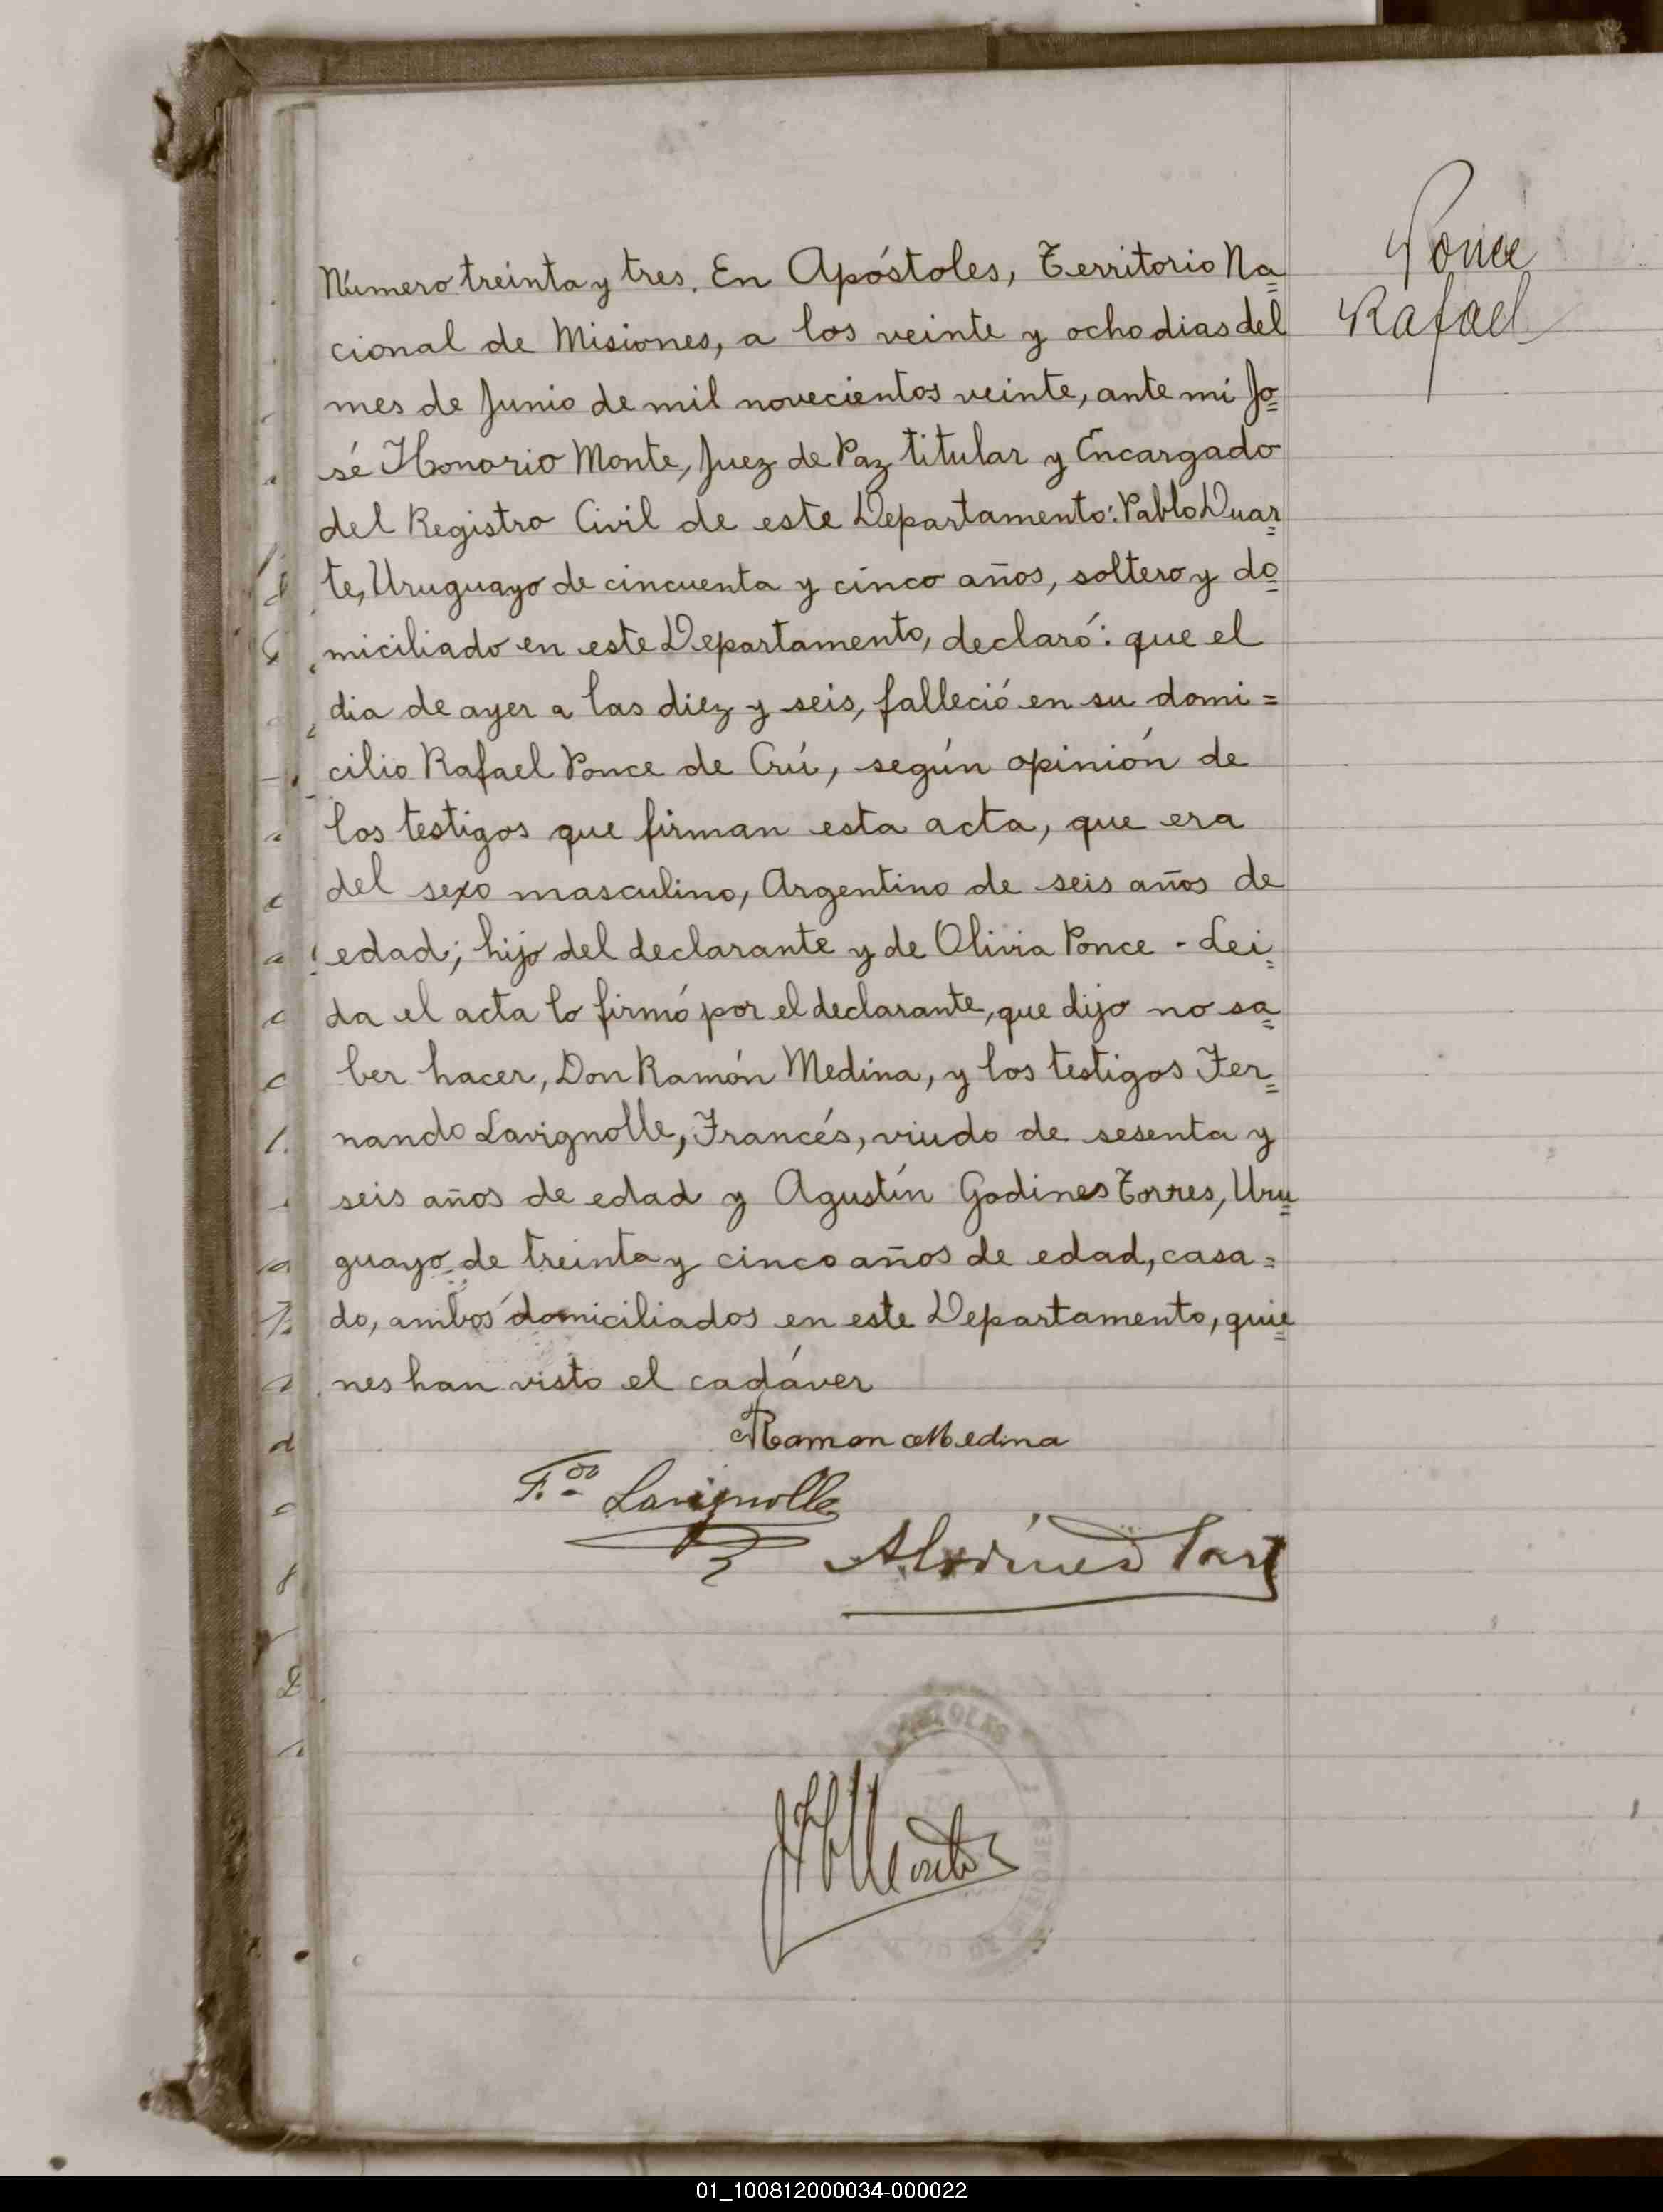 Número treinta y tres. En Apóstoles, Territorio Na=
cional de Misiones, a los veinte y ocho dias del
mes de Junio de mil novecientos veinte, ante mí Jo=
sé Honorio Monte, Juez de Paz titular y Encargado
del Registro Civil de este Departamento: Pablo Duar=
te, Uruguayo de cincuenta y cinco años, soltero y do=
miciliado en este Departamento, declaró: que el
dia de ayer a las diez y seis, falleció en su domi=
cilio Rafael Ponce de Crú, según opinión de
los testigos que firman esta acta, que era
del sexo masculino, Argentino de seis años de
edad; hijo del declarante y de Olivia Ponce - Lei=
da el acta lo firmó por el declarante, que dijo no sa=
ber hacer, Don Ramón Medina, y los testigos Fer=
nando Lavignolle, Francés, viudo de sesenta y
seis años de edad y Agustín Godines Torres, Uru=
guayo de treinta y cinco años de edad, casa=
do, ambos domiciliados en este Departamento, quie=
nes han visto el cadáver
Ponce
Rafael
Ramon Medina
F.do Lavignolle
APOSTOLES
MISIONES
01_100812000034-000022